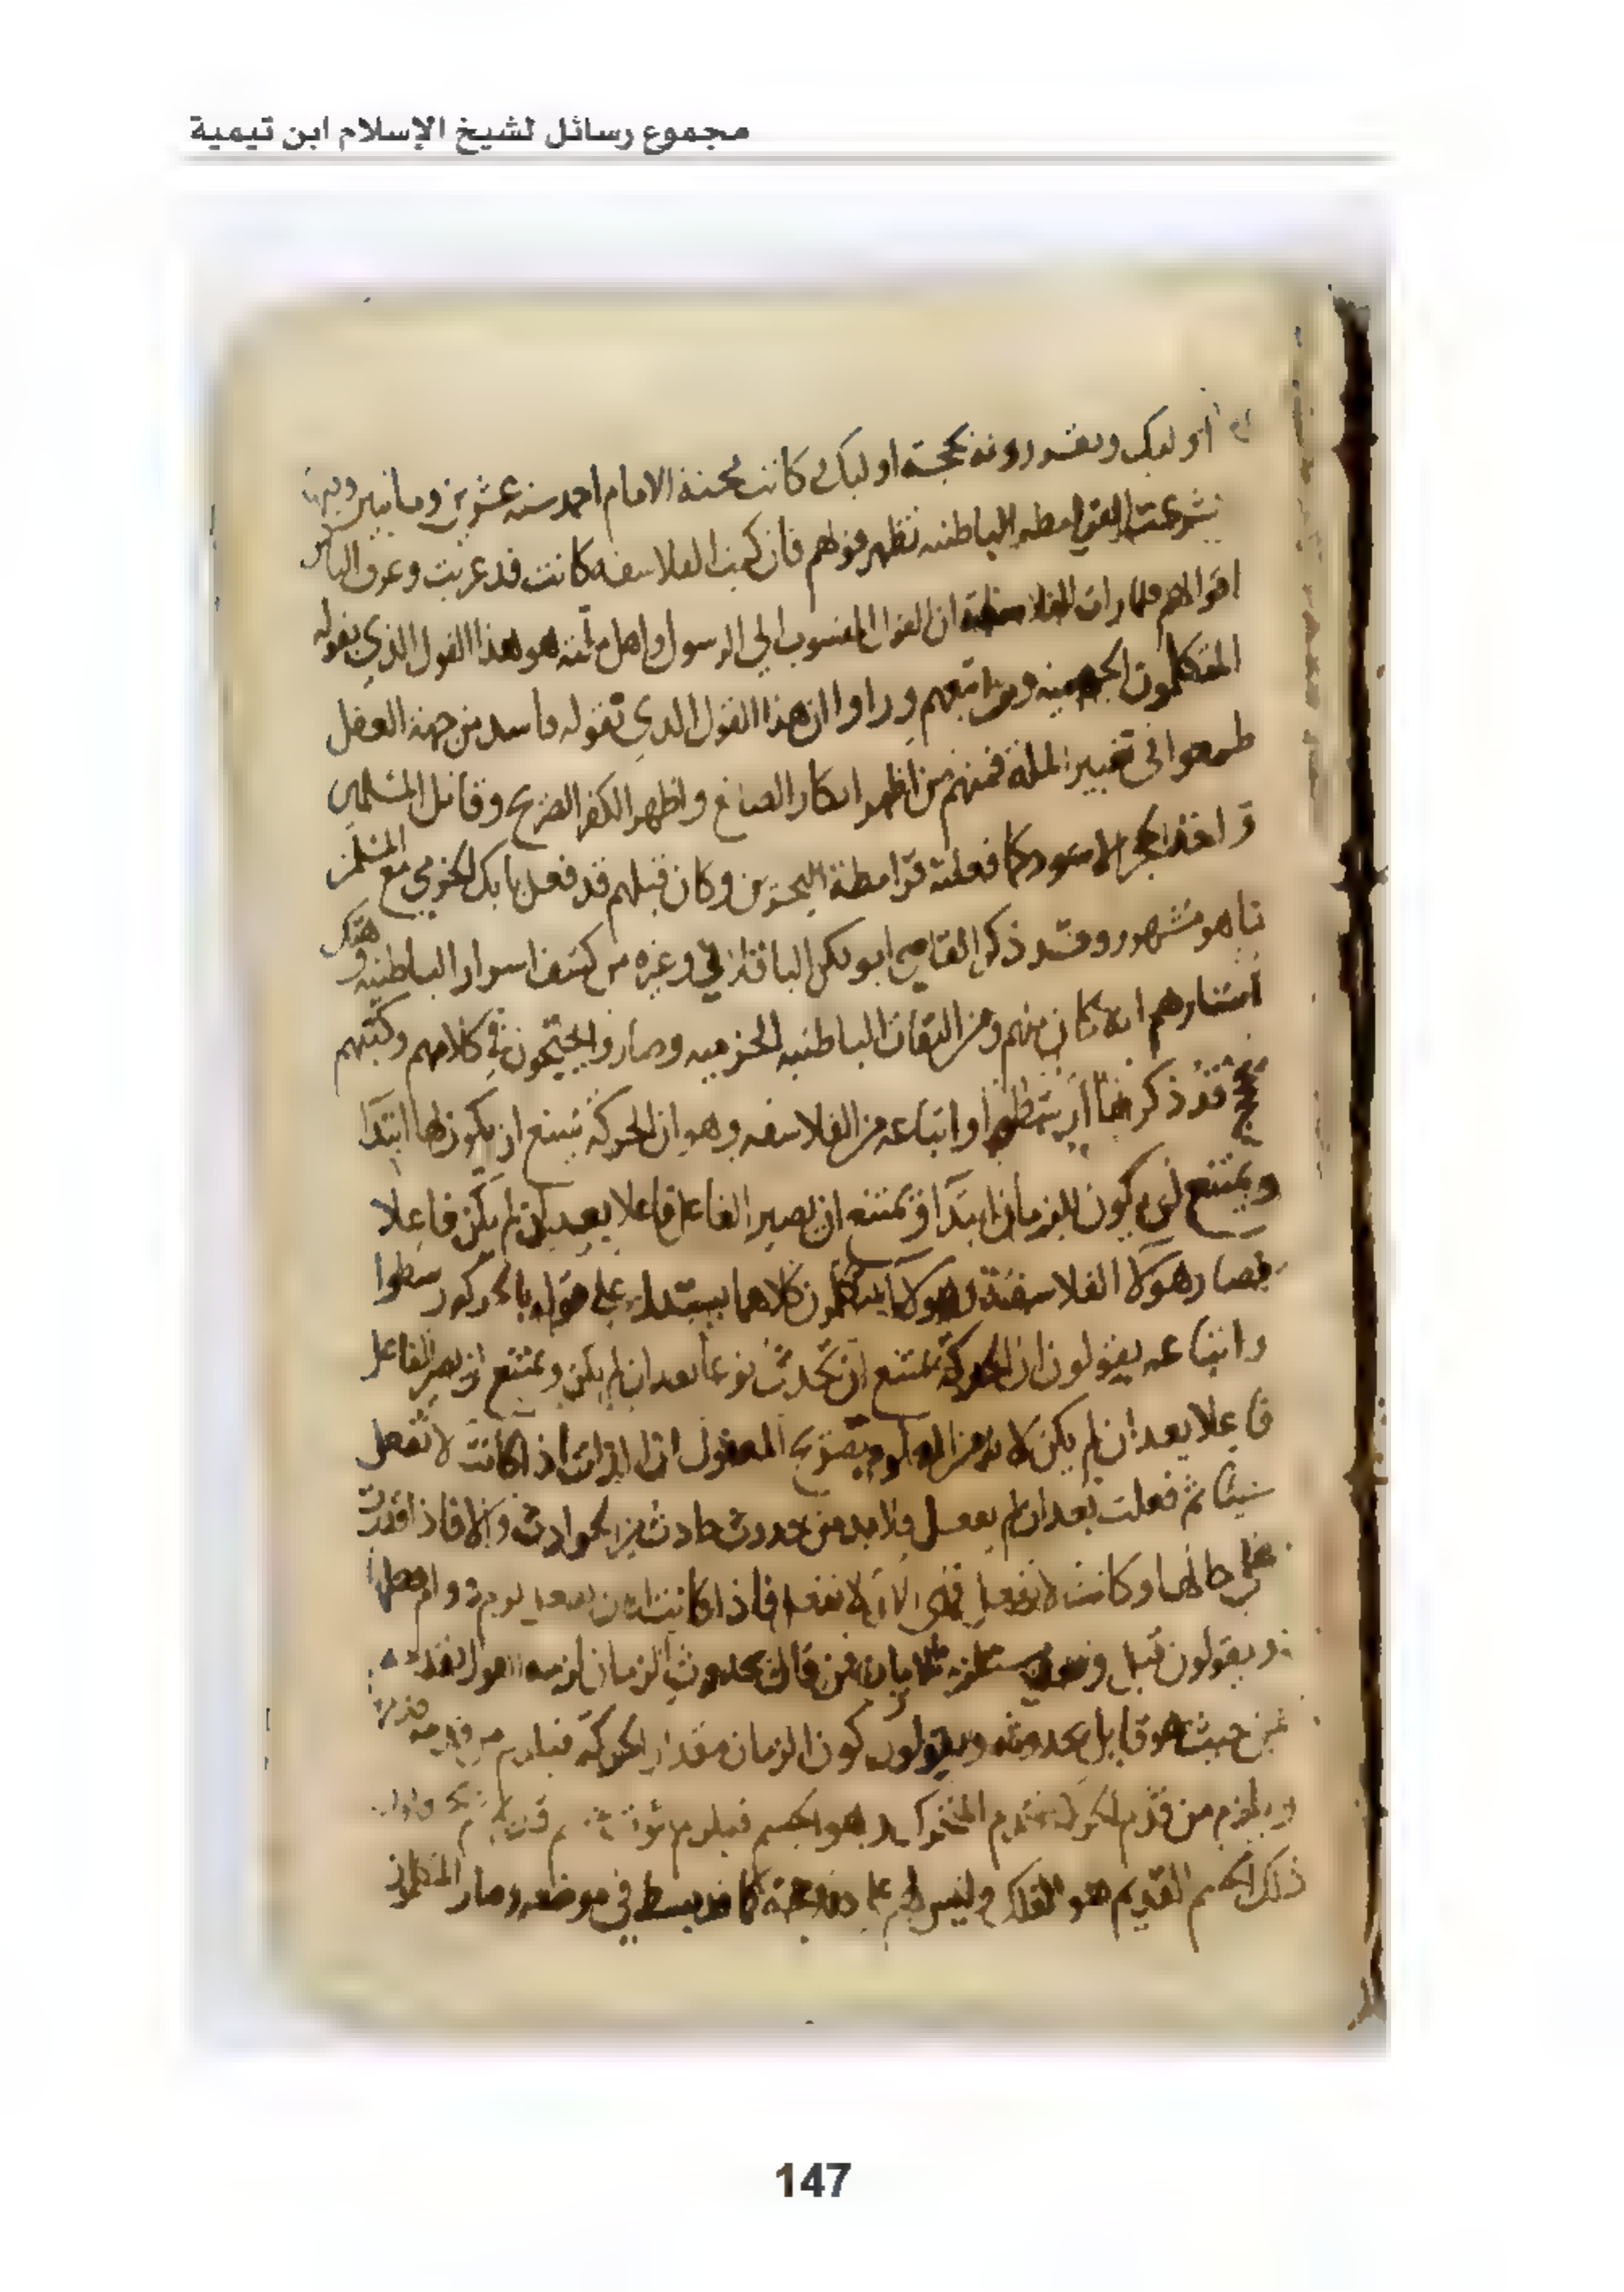 مجموع رسائل لشيخ الإسلام ابن تيمية
اوليك ويقدرونه بحجة اوليك كانت محنة الامام احمد سنه عشرين ومايتين
شرعت القرامطه الباطنيه تظهر قولهم فان كتب الفلاسفه كانت قد عربت وعرف الناس
اقوالهم فلما رات الفلاسفة ان القول المنسوب الي الرسول واهل ملته هو هذا القول الذي يقوله
المتكلمون الجهميه ومن اتبعهم وراوا ان هذا القول الذي تقوله فاسد من جهة العقل
طمعوا في تغيير الملة فمنهم من اظهر انكار الصانع واظهر الكفر الصريح وقاتل المسلمين
واخذ الحجر الاسود كما فعلته قرامطة البحرين وكان قبلهم قد فعل بابك الخرمي مع المسلمين
ما هو مشهور وقد ذكر القاضي ابو بكر الباقلاني وغيره من كشف اسرار الباطنيه وهتك
استارهم انه كان منهم ومن الباطنيه الخرميه وصاروا يحتجون في كلامهم وكتبهم
بحجج قد ذكرها ارسطو واتباعه من الفلاسفه وهو ان الحركة يمتنع ان يكون لها ابتدا
ويمتنع ان يكون للزمان ابتدا ويمتنع ان يصير الفاعل فاعلا بعد ان لم يكن فاعلا
فصار هولا الفلاسفة وهولا المتكلمون كلاهما يستدل على قوله بالحركة
واتباعه يقولون ان الحركة يمتنع ان تحدث نوعا بعد ان لم يكن ويمتنع ان يصير الفاعل
فاعلا بعد ان لم يكن لانه من المعلوم بصريح المعقول ان الذات اذا كانت لا تفعل
شيئا ثم فعلت بعد ان لم تفعل فلا بد من حدوث حادث من الحوادث والا فاذا قدرت
على حالها وكانت لا تفعل فهي الان لا تفعل فاذا كانت
ويقولون قبل وبعد مستلزم للزمان فمن قال بحدوث الزمان لزمه القول بقدمه
من حيث هو قايل بحدوثه ويقولون كون الزمان مقدار الحركة فيلزم من قدمه
ويلزم من قدم الحركة قدم المتحرك وهو الجسم فيلزم ثبوت جسم قديم
ذلك الجسم القديم هو الفلك وليس لهم على هذا حجة كما قد بسط في موضعه وصار المتكلمون
147